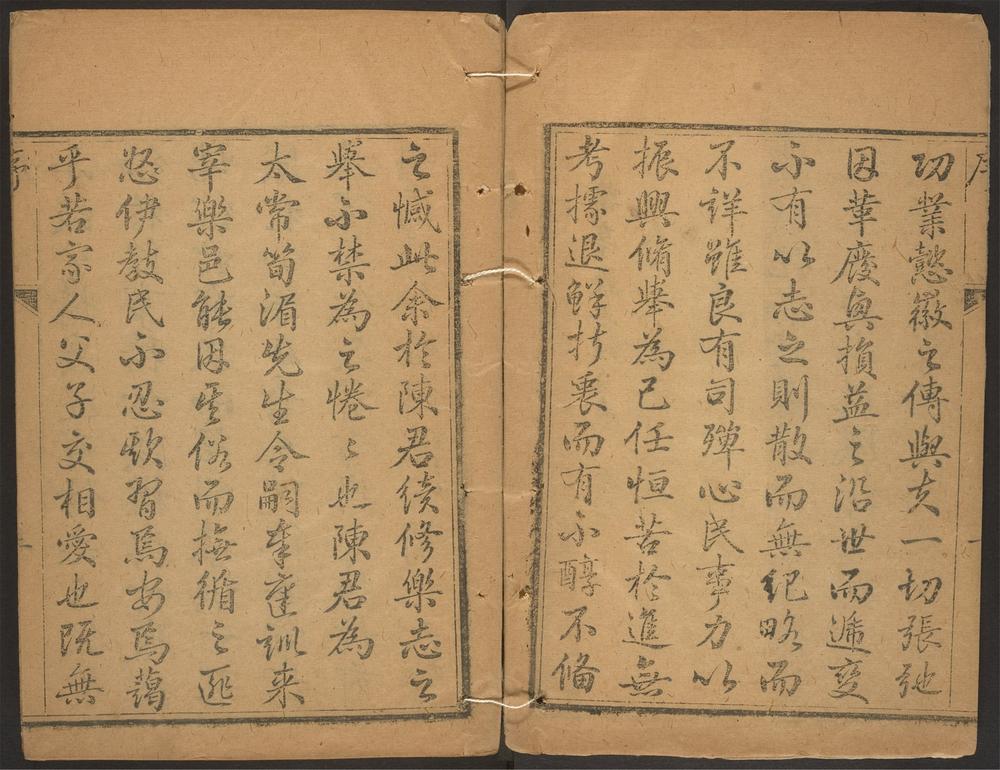 功業懿徽之傳與夫一切張弛
因革廢興損益之沿世而遞變
不有以志之則散而無紀略而
不詳雖良有司殫心民事力以
振興脩舉為己任恒苦於進無
考據退鮮折衷而有不醇不備
之憾此余於陳君續修樂志之
舉不禁為之惓〻也陳君為
太常筍湄先生令嗣奉庭訓来
宰樂邑能因其俗而撫循之匪
怒伊教民不忍欺習焉安焉藹
乎若家人父子交相愛也既無
序